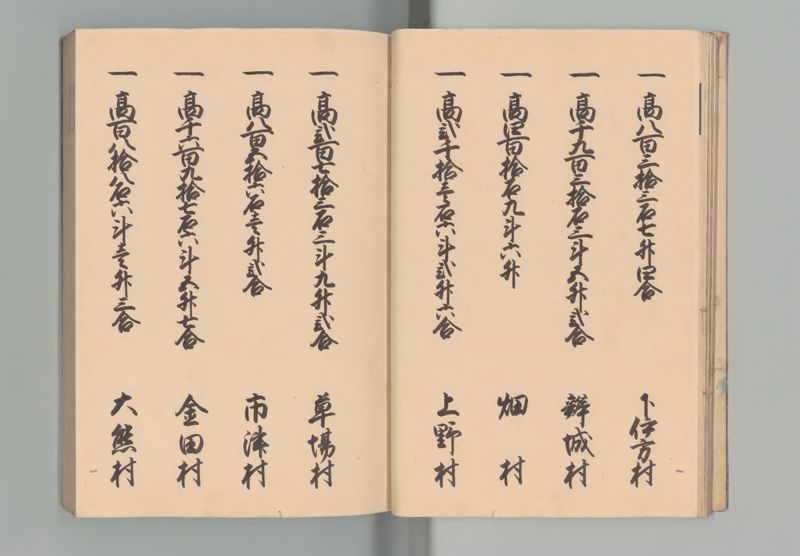 一高八百三拾三石七升四合 下伊方村
一高千九百三拾石三斗五升弐合 弁城村
一高四百拾石九斗六升 畑村
一高弐千拾壱石六斗弐升六合 上野村
一高弐百七拾三石三斗九升弐合 草場村
一高八百五拾六石壱升弐合 市津村
一高千六百九拾七石六斗五升七合 金田村
一高百八拾八石六斗壱升三合 大熊村